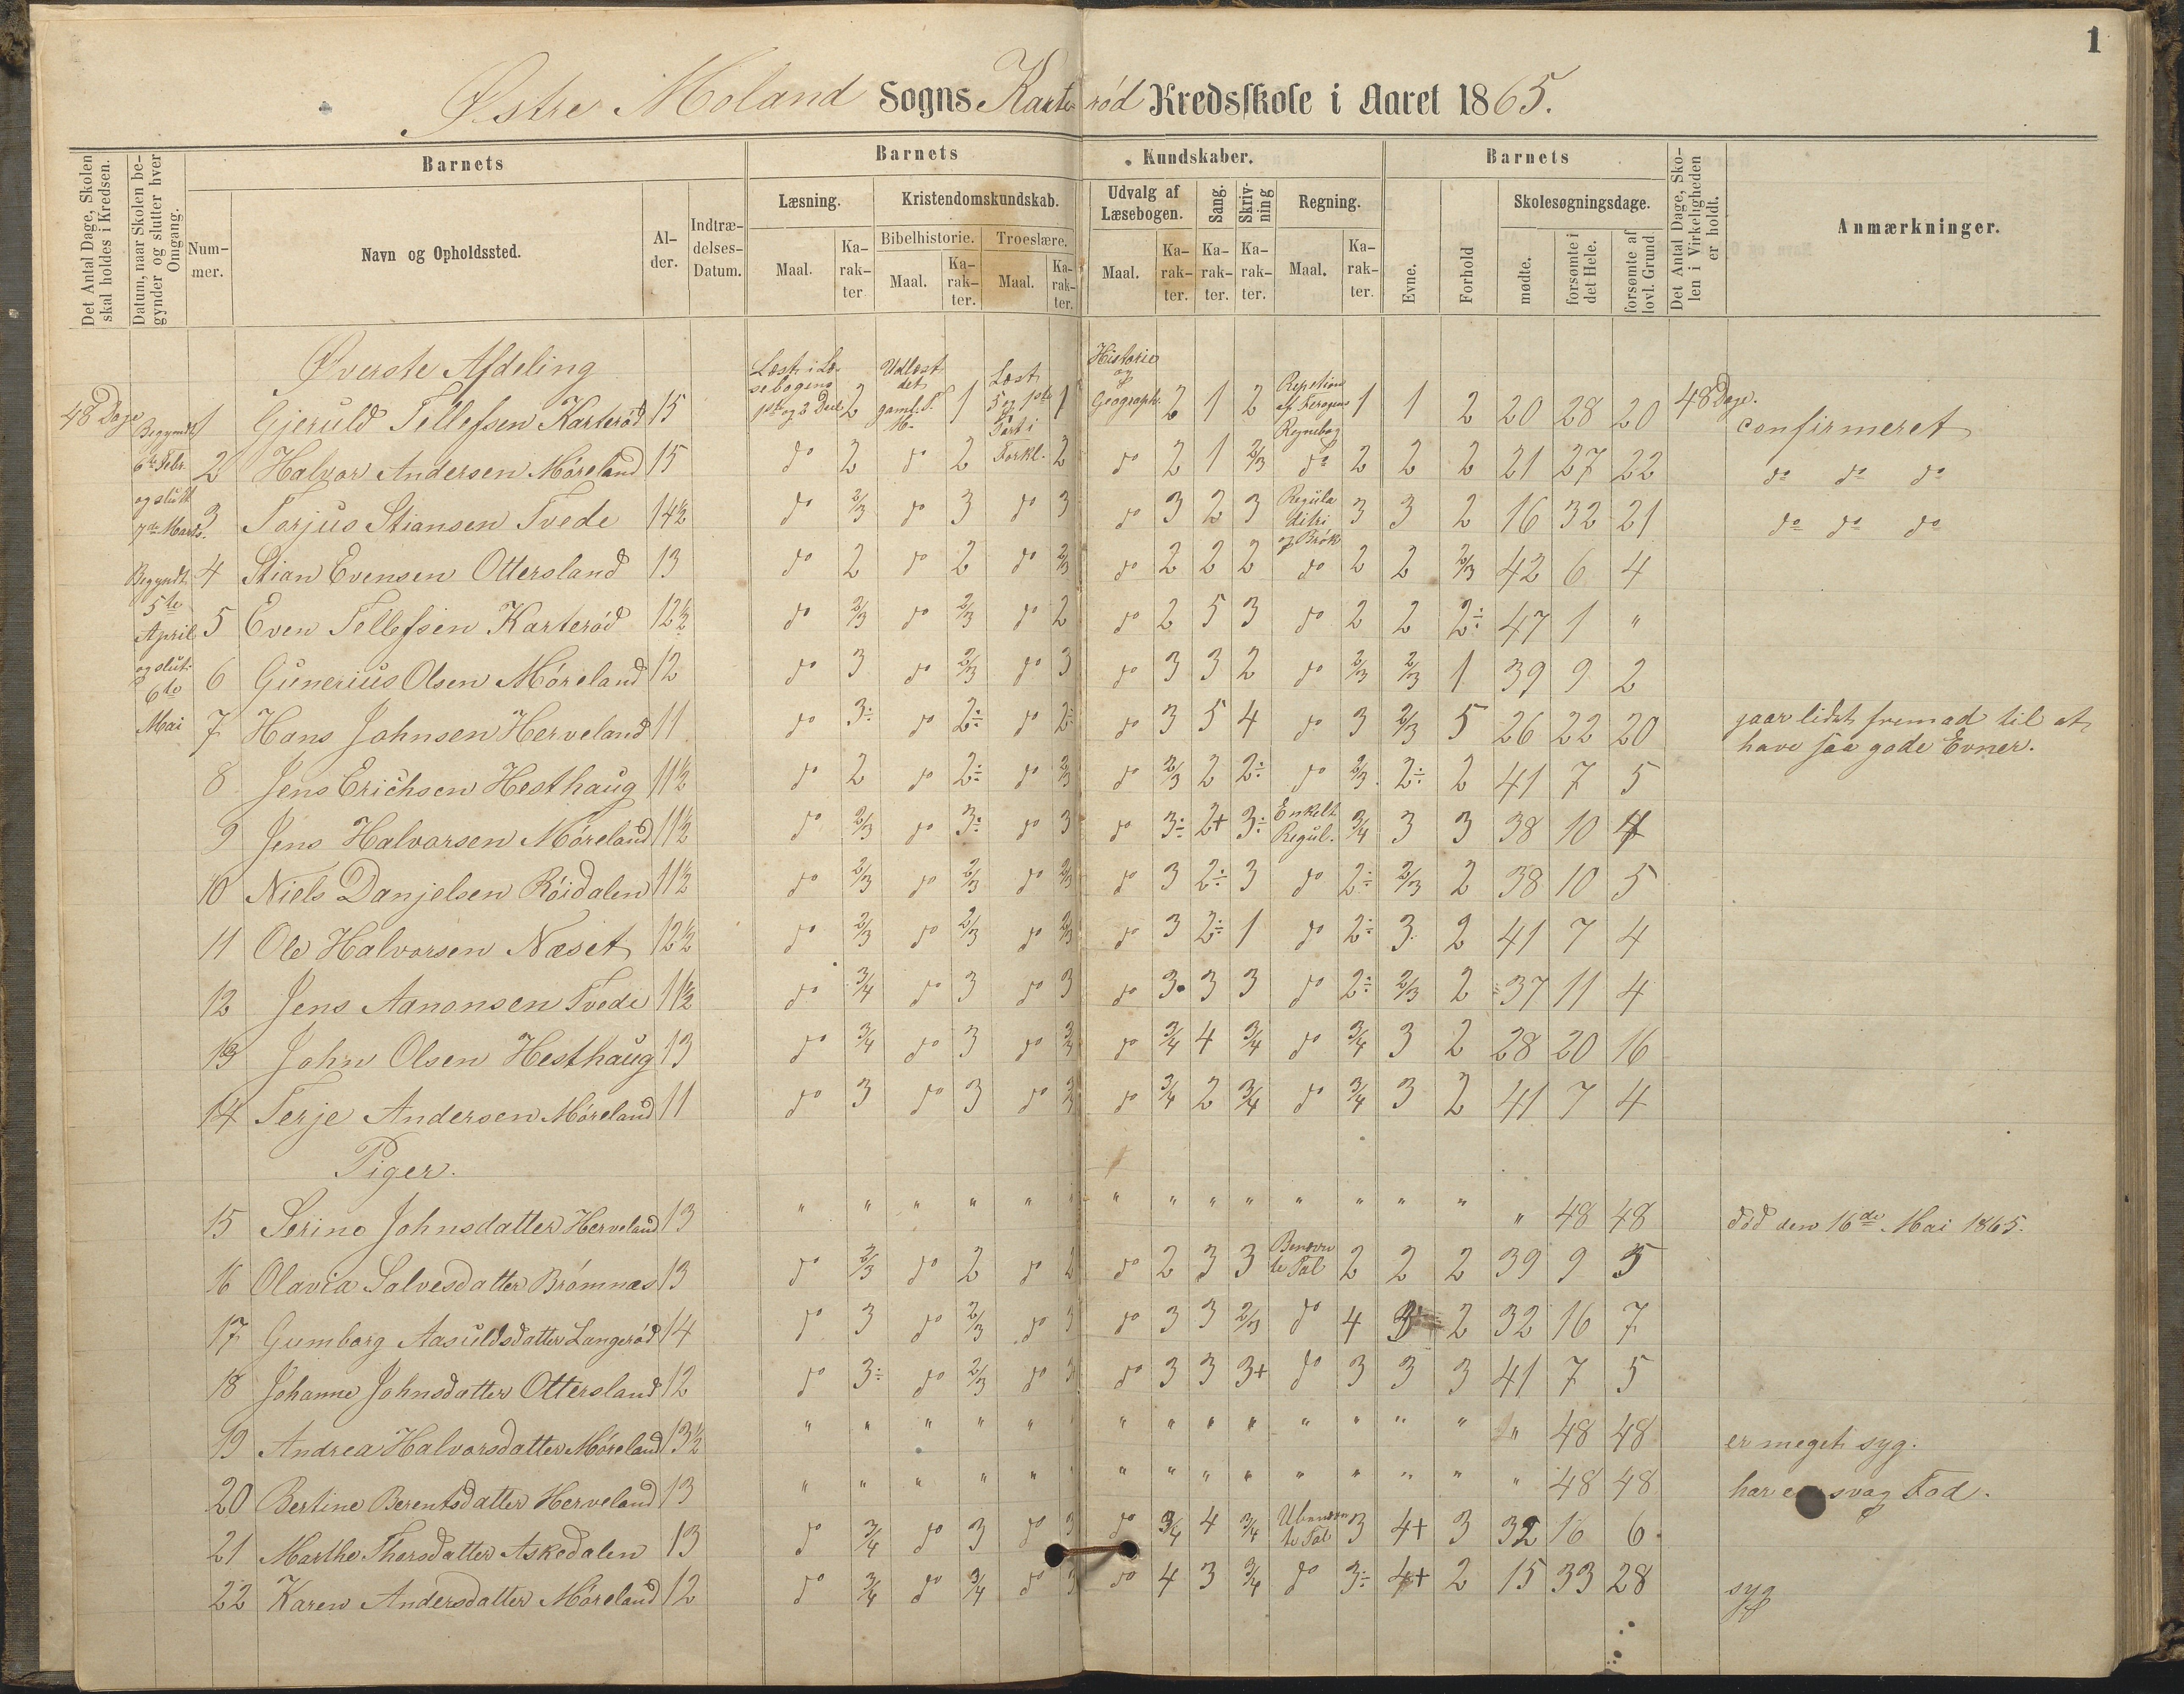 1
Østre Moland Sogns Karterød Kredsskole i Aaret 1865.
Det Antal Dage, Skolen skal holdes i Kredsen.
Datum, naar Skolen begynder og slutter hver Omgang.
Barnets
Nummer.
Navn og Opholdssted.
Alder.
Indtrædelses-Datum.
Barnets Kundskaber.
Læsning.
Maal. Karakter
Kristendomskundskab.
Bibelhistorie. Troeslære.
Maal. Karakter. Maal. Karakter.
Udvalg af Læsebogen.
Maal. Karakter.
Sang. Karakter.
Skrivning Karakter.
Regning.
Maal. Karakter.
Barnets
Evne. Forhold
Skolesøgningsdage.
mødte. forsømte i det Hele. forsømte af lovl. Grund.
Det Antal Dage, Skolen i Virkeligheden er holdt.
Anmærkninger.
Øverste Afdeling
48 Dage
Begyndt 6te Febr. og slutt 7de Marts.
Begyndt 5te April og slut. 6te Mai
1 Gjeruld Tellefsen Karterød 15 Læst i Læsebogens 1ste og 2 Deel 2 Udlæst det gaml. T. H. 1 Læst 5 og 1ste Part i Forkl. 1 Historie og Geograph. 2 1 2 Repetion af Ferogens Regnebog 1 1 2 20 28 20 48 Dage. confirmeret
2 Halvor Andersen Møreland 15 do 2 do 2 2 do 2 1 2/3 do 2 2 2 21 27 22 do do do
3 Torjus Stiansen Tvede 14½ do 2/3 do 3 do 3 do 3 2 3 Regula ditri og Brøk 3 3 2 16 32 21 do do do
4 Stian Evensen Ottersland 13 do 2 do 2 do 2/3 do 2 2 2 do 2 2 2/3 42 6 4
5 Even Tellefsen Karterød 12½ do 2/3 do 2/3 do 2 do 2 5 3 do 2 2 2÷ 47 1 "
6 Gunerius Olsen Møreland 12 do 3 do 2/3 do 3 do 3 3 2 do 2/3 2/3 1 39 9 2
7 Hans Johnsen Herveland 11 do 3÷ do 2÷ do 2÷ do 3 5 4 do 3 2/3 5 26 22 20 gaar lidet fremad til at have saa gode Evner.
8 Jens Erichsen Hesthaug 11½ do 2 do 2÷ do 2/3 do 2/3 2 2÷ do 2/3 2÷ 2 41 7 5
9 Jens Halvorsen Møreland 11½ do 2/3 do 3÷ do 3 do 3÷ 2+ 3÷ Enkelt Regul. 3/4 3 3 38 10 4
10 Niels Danjelsen Røidalen 11½ do 2/3 do 2/3 do 2/3 do 3 2÷ 3 do 2÷ 2/3 2 38 10 5
11 Ole Halvorsen Næset 12½ do 2/3 do 2/3 do 2/3 do 3 2÷ 1 do 2÷ 3 2 41 7 4
12 Jens Aanonsen Tvede 11½ do 3/4 do 3 do 3 do 3 3 3 do 2÷ 2/3 2 37 11 4
13 John Olsen Hesthaug 13 do 3/4 do 3 do do 3/4 4 3/4 do 3/4 3 2 28 20 16
14 Terje Andersen Møreland 11 do 3 do 3 do do 3/4 2 3/4 do 3/4 3 2 41 7 4
Piger.
15 Serine Johnsdatter Herveland 13 " " " " " " " " " " " " " " " 48 48 død den 16de Mai 1865.
16 Olavia Salvesdatter Brømnæs 13 do 2/3 do 2 do 2 do 2 3 3 Benævnte Tal 2 2 2 39 9 5
17 Gumborg Aasuldsdatter Langerød 14 do 3 do 2/3 do 3 do 3 3 2/3 do 4 3 2 32 16 7
18 Johanne Johnsdatter Ottersland 12 do 3÷ do 2/3 do 3 do 3 3 3+ do 3 3 3 41 7 5
19 Andrea Halvorsdatter Møreland 13½ " " " " " " " " " " " " " " " 48 48 er meget syg.
20 Bertine Berentsdatter Herveland 13 " " " " " " " " " " " " " " " 48 48 har en svag Fod.
21 Marthe Thorsdatter Askedalen 13 do 3/4 do 3 do 3 do 3/4 4 3/4 Ubenævnte Tal 3 4+ 3 32 16 6
22 Karen Andersdatter Møreland 12 do 3/4 do 3/4 do 3 do 4 3 3/4 do 3÷ 4+ 2 15 33 28 syg